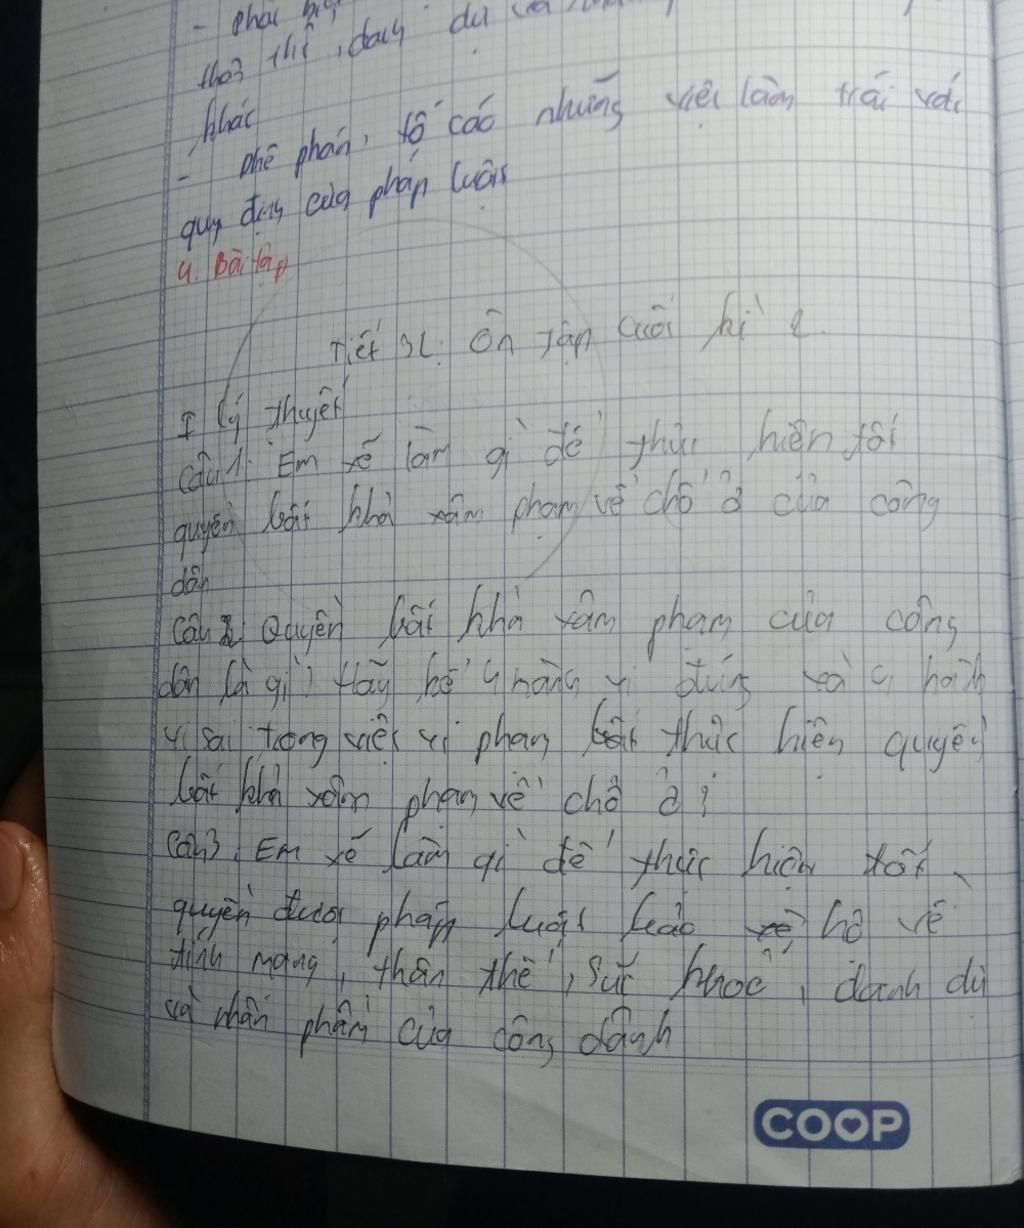 - phải
thân thể, danh dự và
khác
- phê phán, tố cáo những việc làm trái với
quy định của pháp luật
4. Bài tập
Tiết 32: Ôn tập cuối kì 2
I Lý thuyết
Câu 1: Em sẽ làm gì để thực hiện tốt
quyền bất khả xâm phạm về chỗ ở của công
dân
Câu 2 Quyền bất khả xâm phạm của công
dân là gì? Hãy kể 4 hành vi đúng và 4 hành
vi sai trong việc vi phạm thực hiện quyền
bất khả xâm phạm về chỗ ở?
Câu 3. Em sẽ làm gì để thực hiện tốt
quyền được pháp luật bảo hộ về
tính mạng, thân thể, sức khoẻ, danh dự
và nhân phẩm của công dânh
COOP